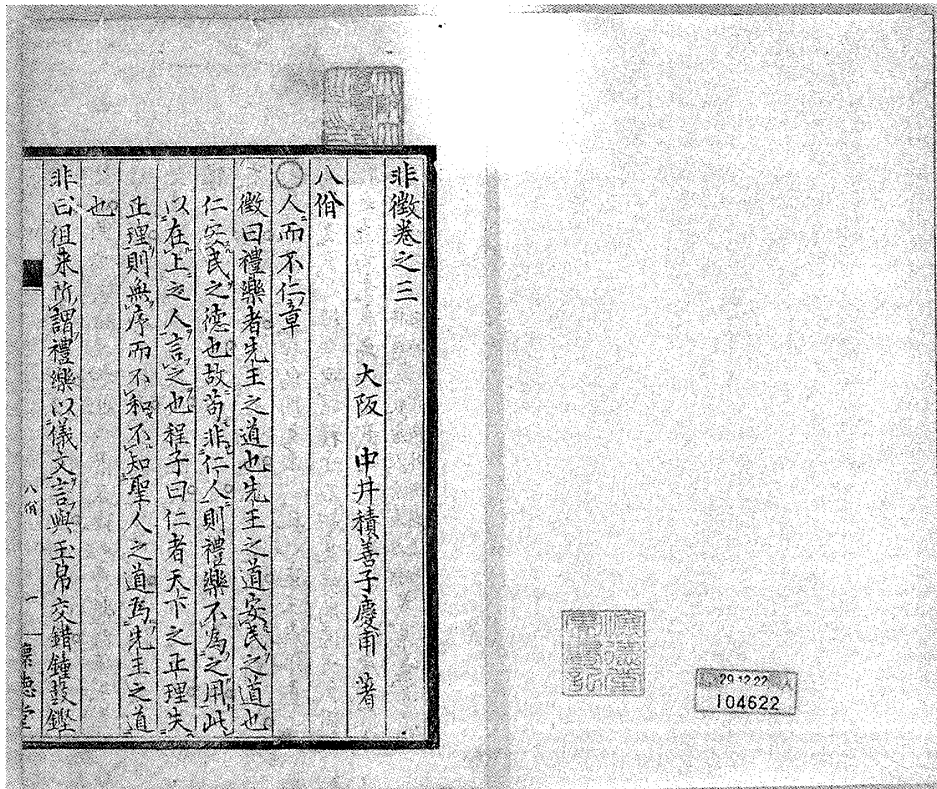 非徴巻之三
大阪 中井積善子慶甫 著
八佾
○人而不仁章
徴曰禮樂者先王之道也先王之道安民之道也
仁安民之徳也故苟非仁人則禮樂不為之用此
以在上之人言之也程子曰仁者天下之正理失
正理則無序而不和不知聖人之道焉先王之道
也
非曰徂来所謂禮樂以儀文言與玉帛交錯鐘鼓鏗
八佾
一
懐徳堂
29.12.22
104622